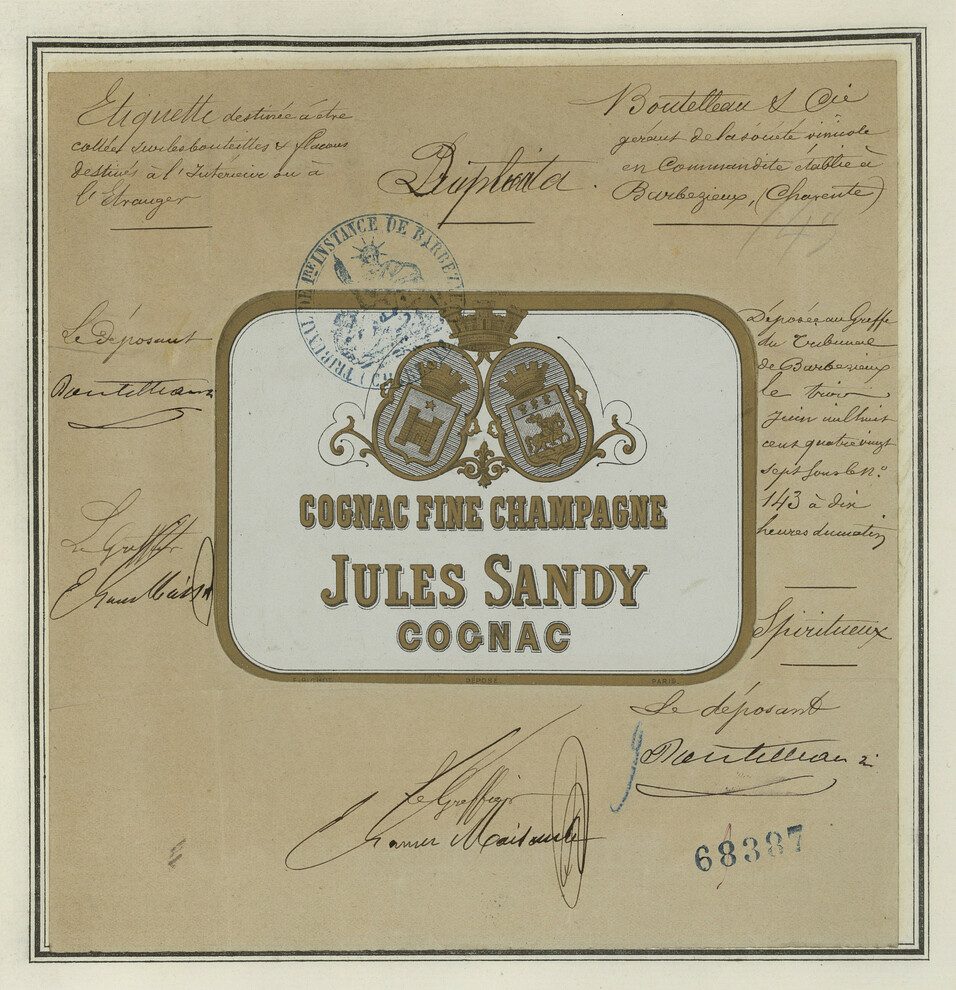 Etiquette destinée à être
collée sur les bouteilles & flacons
destinés à l'Intérieur ou à
l'Etranger
Duplicata.
Boutelleau & Cie
gérant de la société vinicole
en Commandite établie à
Barbezieux, (Charente)
TRIBUNAL DE 1RE INSTANCE DE BARBEZ
Le déposant
Boutelleau
Le Greffier
Déposée au Greffe
du Tribunal
de Barbezieux
le trois
juin mil huit
cent quatre vingt
sept sous le No.
143 à dix
heures du matin
COGNAC FINE CHAMPAGNE
JULES SANDY
COGNAC
DÉPOSÉ
PARIS.
Spiritueux
Le déposant
Boutelleau
Le Greffier
68387